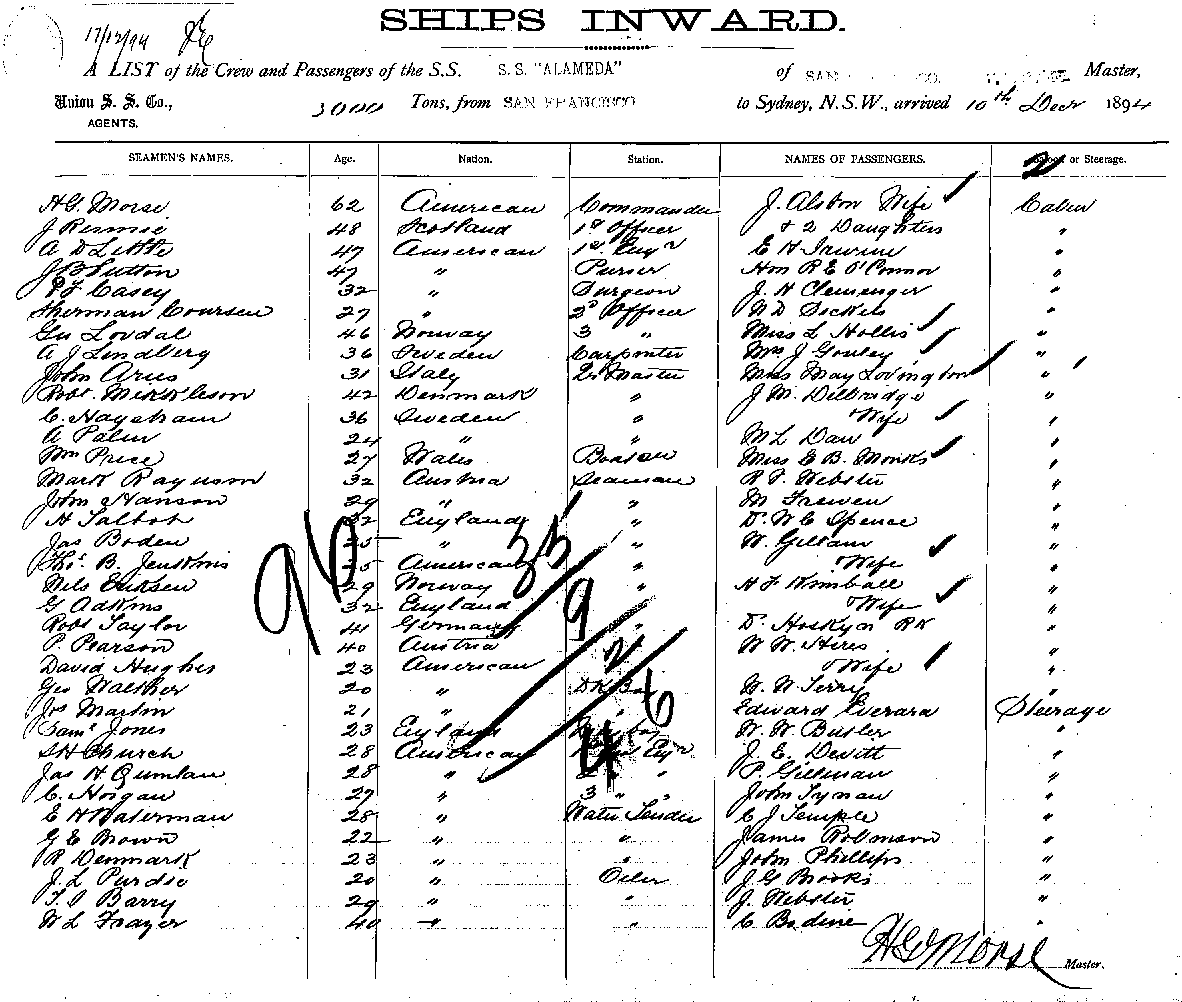 SHIPS INWARD.
17/12/94
A LIST of the Crew and Passengers of the S.S. S.S. "ALAMEDA" of SAN CO. Master,
Union S. S. Co., 3000 Tons, from SAN FRANCISCO to Sydney, N.S.W., arrived 10th Decr 1894
AGENTS.
SEAMEN'S NAMES. Age. Nation. Station. NAMES OF PASSENGERS. or Steerage.
2
H G Morse 62 American Commander J. Alston Wife Cabin
J Rennie 48 Scotland 1st Officer + 2 Daughters "
A D Little 47 American 1st Engr E H Irwine "
J B Sutton 47 " Purser Hon R E O'Connor "
P F Casey 32 " Surgeon J. H Clemenger "
Sherman Coursen 27 " 2d Officer W D Dickers "
Gus Lovdal 46 Norway 3 " Miss L Hollis "
A J Lindberg 36 Sweden Carpenter Mrs J Gouley "
John Arus 31 Italy Master Miss May Lovington "
Robt. Mikkleson 42 Denmark " J M. Dilbridge "
C. Hagstram 36 Sweden " Wife "
A Palm 24 " " M L Daw "
Wm Price 27 Wales Boatsn Miss E B. Monks "
Mark Raguson 32 Austria Seaman R F. Webster "
John Hanson 29 " " M Frewen "
H Talbot 32 England " Dr W C Spence "
Jas Boden 25 " " W. Gillam "
Thos. B. Jenkins 25 American " Wife "
Nels Eriksen 29 Norway " H F Kimball "
G Adkins 32 England " Wife "
Robt Taylor 41 Germany " Dr Hoskyn RN "
P. Pearson 40 Austria W W. Hires "
David Hughes 23 American Wife "
Geo Walther 20 " W. W Terry "
Jos Martin 21 " Edward Everard Steerage
Saml Jones 23 England W. W Butler "
S H Church 28 American Engr J. E. Devitt "
Jas H Quinlan 28 " 2 " P. Gillman "
C. Horgan 27 " 3 " " John Tynan "
E H Waterman 28 " Water Tender C J Temple "
G E Brown 22 " " James Robinson "
R Denmark 23 " " John Phillips "
J. L Purdie 20 " Oiler J G Brooks "
T. I Barry 29 " " J. Webster "
W L Frayer 40 " " C Bodine "
96
35
9
2
46
H G Morse Master.